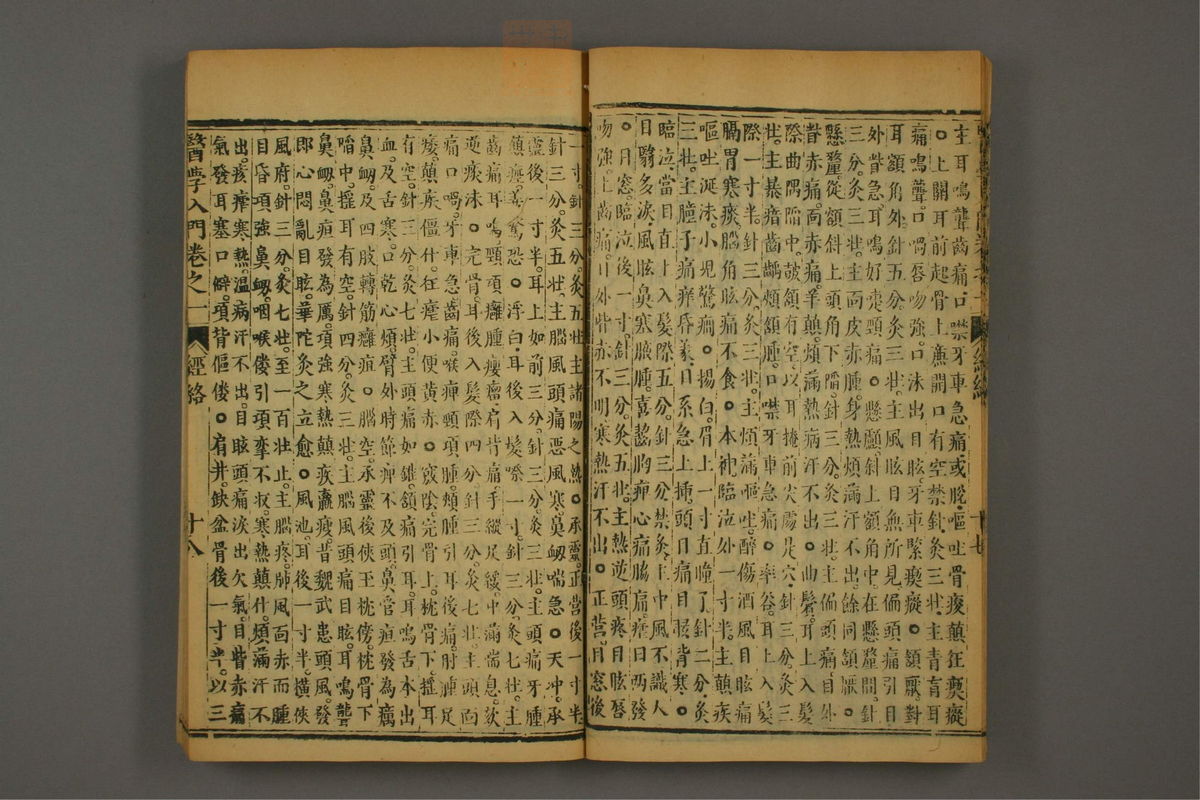 主耳鳴聾齒痛口噤牙車急痛或脫嘔吐骨痠顛狂瘈瘲
○上關耳前起骨上廉開口有空禁針灸三壯主青盲耳
痛鳴聾口喎唇吻強口沫出目眩牙車緊瘈瘲○頷厭對
耳額角外針五分灸三壯主風眩目無所見偏頭痛引目
外眥急耳鳴好嚏頸痛○懸顱斜上額角中在懸釐間針
三分灸三壯主面皮赤腫身熱煩滿汗不出餘同頷厭○
懸釐從額斜上頭角下䧟針三分灸三壯主偏頭痛目外
眥赤痛面赤痛羊顛煩滿熱病汗不出○曲鬢耳上入髮
際曲隅䧟中皷頷有空以耳掩前尖處是穴針三分灸三
壯主暴瘖齒齲頰頷腫口噤牙車急痛○率谷耳上入髮
際一寸半針三分灸三壯主煩滿嘔吐醉傷酒風目眩痛
膈胃寒痰腦角眩痛不食○本神臨泣外一寸半主顛疾
嘔吐涎沫小兒驚癎○揚白眉上一寸直瞳子針二分灸
三壯主瞳子痛痒昏蒙目系急上揷頭目痛目眩背寒○
臨泣當目直上入髮際五分針三分禁灸主中風不識人
目翳多淚風眩鼻塞腋腫喜齧胸痺心痛脇痛瘧日兩發
○目窓臨泣後一寸針三分灸五壯主熱逆頭疼目眩唇
吻強上齒痛目外眥赤不明寒熱汗不出○正營目窓後
一寸針三分灸五壯主諸陽之熱○承靈正營後一寸半
針三分灸五壯主腦風頭痛惡風寒鼻衂喘急○天冲承
靈後一寸半耳上如前三分針三分灸三壯主頭痛牙腫
顛瘲善驚恐○浮白耳後入髮際一寸針三分灸七壯主
齒痛耳鳴頸項癰腫癭瘤肩背痛手縱足緩中滿喘息欬
逆痰沫○完骨耳後入髮際四分針三分灸七壯主頭面
痛口喎牙車急齒痛喉痺頸項腫頰腫引耳後痛肘腫足
痿顛疾僵什狂瘧小便黃赤○竅陰完骨上枕骨下搖耳
有空針三分灸七壯主頭痛如錐頷痛引耳耳鳴舌本出
血及舌寒口乾心煩臂外肘節痺不及頭鼻管疽發為癘
鼻衂及四肢轉筋癰疽○腦空承靈後俠玉枕傍枕骨下
䧟中搖耳有空針四分灸三壯主腦風頭痛目眩耳鳴聾
鼻衂鼻疽發為厲項強寒熱顛疾羸瘦昔魏武患頭風發
即心悶亂目眩華陀灸之立愈○風池耳後一寸半橫俠
風府針三分灸七壯至一百壯止主腦疼肺風面赤而腫
目昏項強鼻衂咽喉僂引項攣不收寒熱顛什煩滿汗不
出痎瘧寒熱溫病汗不出目眩頭痛淚出欠氣目眥赤痛
氣發耳塞口僻項背傴僂○肩井缺盆骨後一寸半以三
醫學入門卷之一
經絡
十八